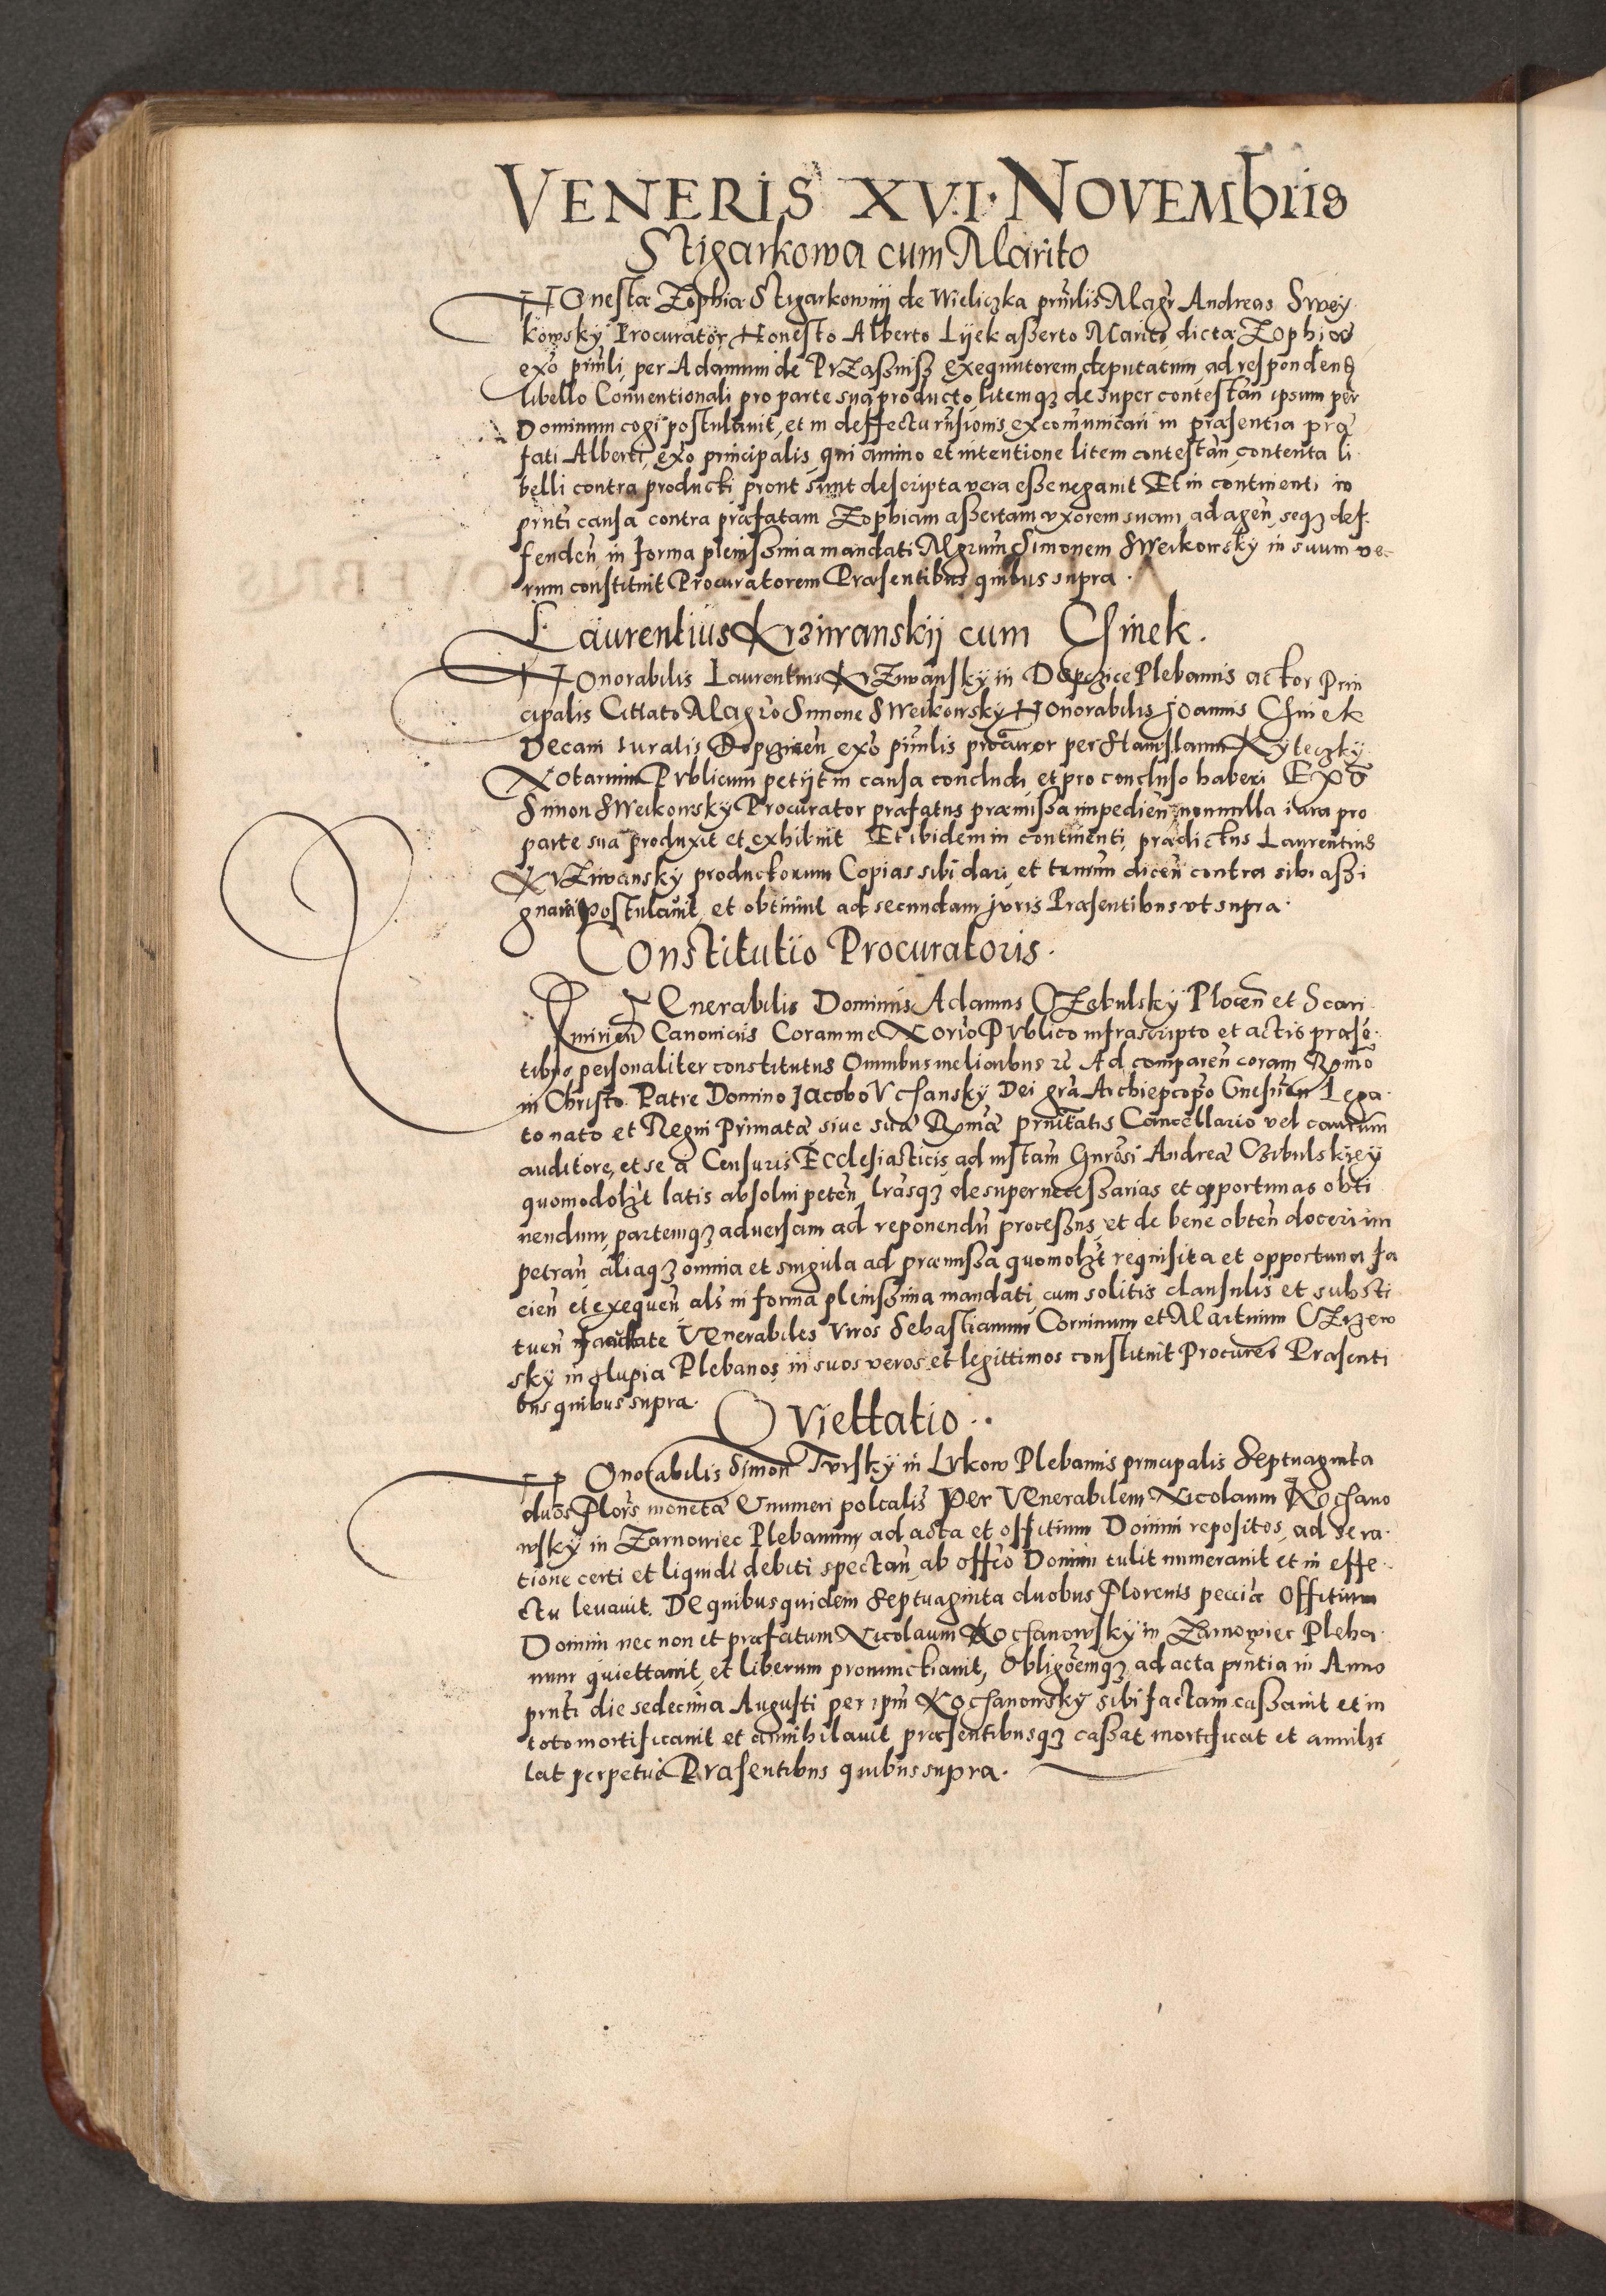 VENERIS XVI. NOVEMbriis
Stigarkowa cum Marito
HOnestæ Zophiæ Stigarkownij de Wieliczka prinlis Magr Andreas Swey
kowsky Procurator, Honesto Alberto Lijek aßerto Marito, dictæ Zophiæ
exo prinli, per Adamum de PrZasznisz Exequutorem deputatum, ad respondend
libello Conuentionali pro parte sua producto, litemqz desuper contestan ipsum per
Dominum cogi postulauit, et in deffectu rnsionis excomunicari in præsentia præ
fati Alberti, exo principalis, qui animo et intentione litem contestan, contenta li
belli contra producti pront sunt descripta vera eße negauit Et in continenti in
prnti causa contra præfatam Zophiam aßertam vxorem suam, ad agen, seqz def
fenden, in forma plenißima mandati Mgrum Simonem Sweikowsky in suum ve
rum constituit Procuratorem Præsentibus quibus supra.
Laurentius Krziwranskij cum Chinek.
HOnorabilis Laurentius KrZiwansky in Dopczice Plebanus actor Prin
cipalis Citato Magro Simone Sweikowsky Honorabilis Joannis Chinek
Decani ruralis Dopczicen exo prinlis procuror per Stanislaum Kyteczky
Notarium Publicum petijt in causa concludi, et pro concluso haberi Exo
Simon Sweikowsky Procurator præfatus præmißa impedien nonnulla iura pro
parte sua produxit et exhibuit Et ibidem in continenti, prædictus Laurentius
KrZiwansky productorum Copias sibi dari, et trmum dicen contra sibi aßi
gnari postulauit, et obtinuit ad secundam juris Præsentibus vt supra.
Constitutio Procuratoris.
VEnerabilis Dominus Adamus CZebulsky Plocen et Scari
mirien Canonicus Coram me Norio Publico infrascripto et actis præsē
tibus personaliter constitutus Omnibus melioribus rc Ad comparen coram Rmo
in Christo Patre Domino Jacobo Vchansky Dei gra Archiepcopo Gnesnen Lega
to nato et Regni Primatæ, siue suæ Rmæ prnitatis Cancellario vel causarum
auditore, et se a Censuris Ecclesiasticis, ad instam Gnrosi Andreæ CZibulskiey
quomodolzt latis absolui peten, lrasqz desuper neceßarias et opportunas obti
nendum, partemqz aduersam ad reponendu proceßus, et de bene obten doceri im
petran aliaqz omnia et singula ad præmißa quomolzt requisita et opportuna fa
cien et exequen, als in forma plenißima mandati, cum solitis clausulis et substi
tuen facultate Venerabiles Viros Sebastianum Corninum et Martinum CZrzew
sky in Slupia Plebanos in suos veros et legittimos constituit Procures Præsenti
bus quibus supra.
Quiettatio..
HOnorabilis Simon Tursky in Lukow Plebanus principalis Septuaginta
duos Flors monetæ & numeri polcalis Per Venerabilem Nicolaum Kochano
wsky in Zarnowiec Plebanum, ad acta et offitium Domini repositos, ad se ra
tione certi et liquidi debiti spectan, ab offcio Domini tulit numerauit et in effe
ctu leuauit. De quibus quidem Septuaginta duobus Florenis pecciæ Offitium
Domini nec non et præfatum Nicolaum Kochanowsky in Zarnowiec Pleba
num quiettauit, et liberum pronunctiauit, Obligoemqz ad acta prntia in Anno
prnti die sedecima Augusti per ipm Kochanowsky sibi factam caßauit et in
toto mortificauit et annihilauit præsentibusqz caßat mortificat et annihi
lat perpetuo Præsentibus quibus supra.